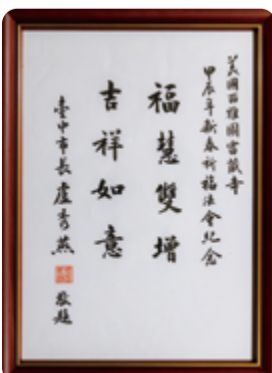 美國西雅圖雷藏寺
甲辰年新春祈福法會紀念
福慧雙增
吉祥如意
臺中市長盧秀燕 敬題